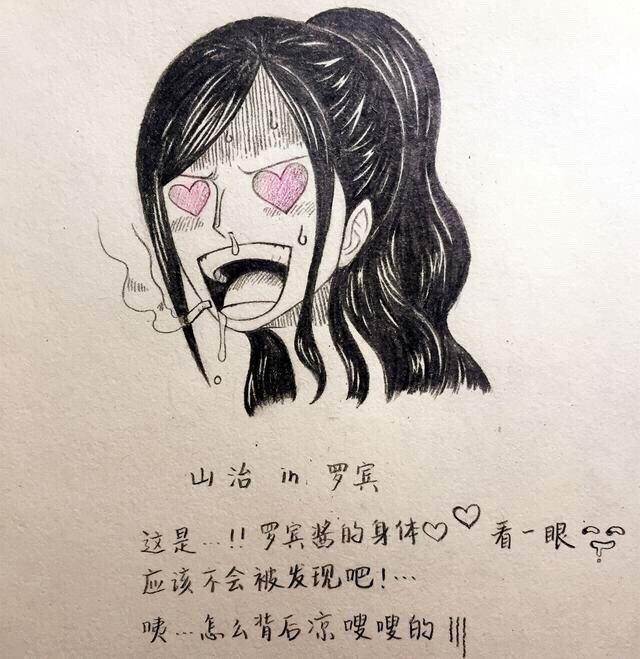 山治 in 罗宾
这是…!! 罗宾酱的身体♡♡ 看一眼
应该不会被发现吧!…
咦…怎么背后凉嗖嗖的